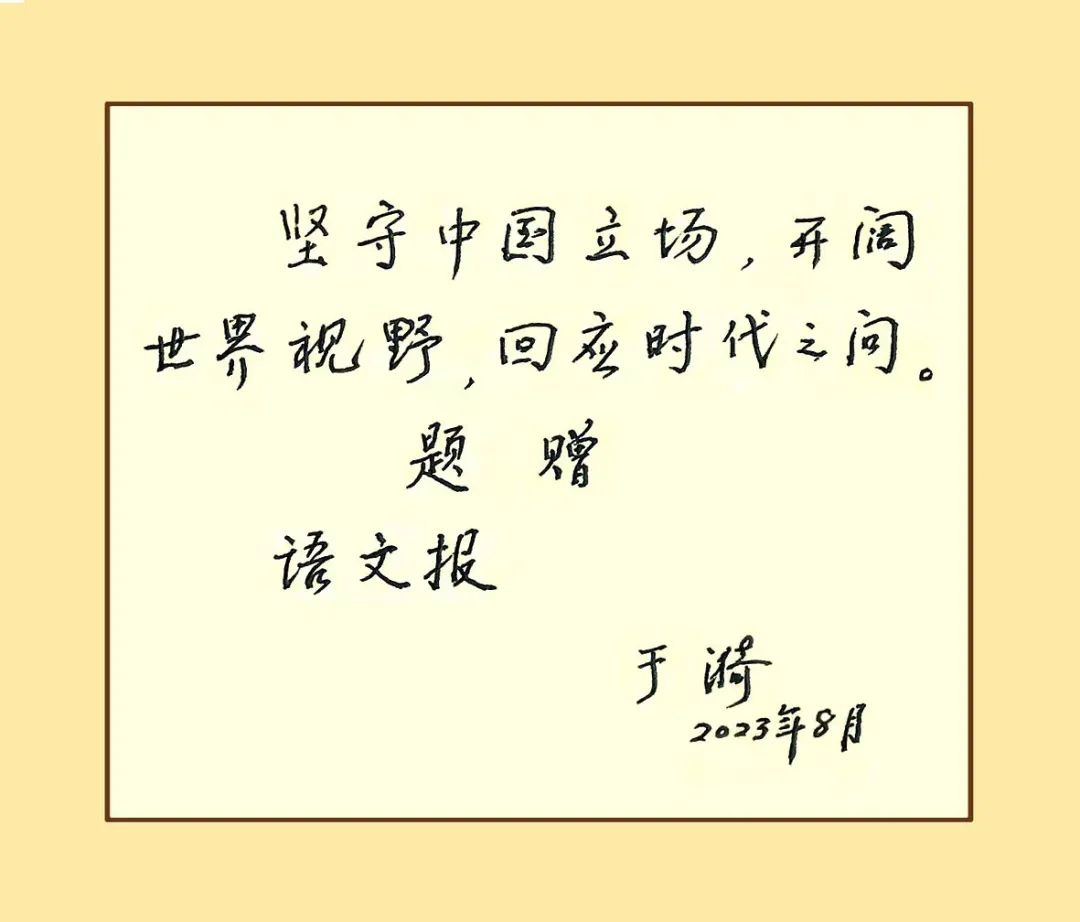 坚守中国立场,开阔
世界视野,回应时代之问。
题 赠
语文报
于漪
2023年8月